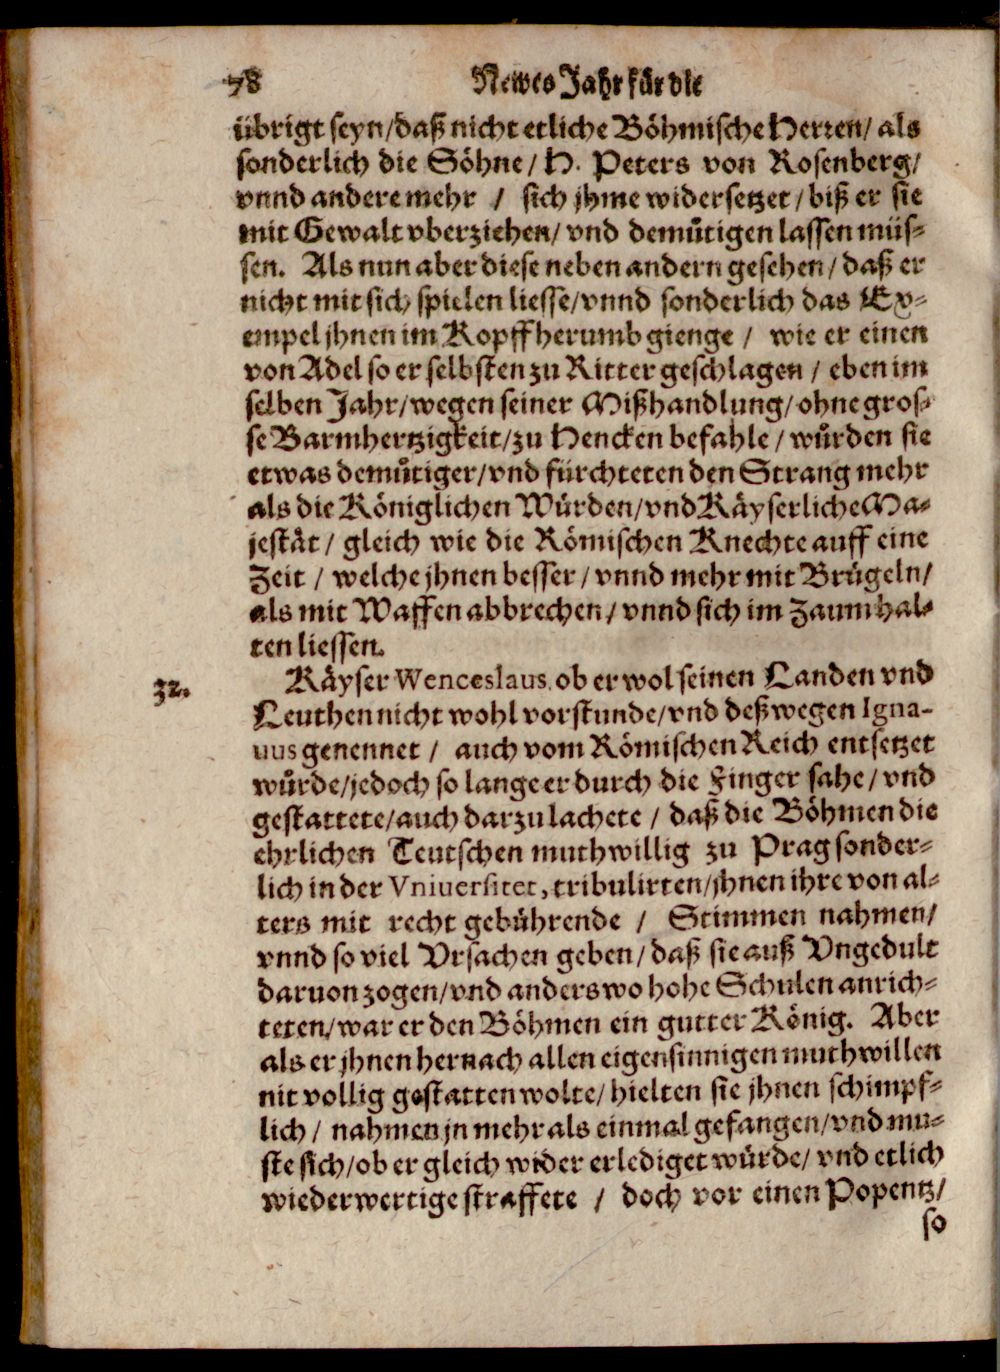 78 Newes Jahr für die
übrigt seyn/daß nicht etliche Böhmische Herren/ als
sonderlich die Söhne/ H. Peters von Rosenberg/
vnnd andere mehr / sich jhme widersetzet/ biß er sie
mit Gewalt vberziehen/ vnd demütigen lassen müs-
sen. Als nun aber diese neben andern gesehen/ daß er
nicht mit sich spielen liesse/vnnd sonderlich das Ex-
empel jhnen im Kopff herumb gienge / wie er einen
von Adel so er selbsten zu Ritter geschlagen / eben im
selben Jahr/wegen seiner Mißhandlung/ohne gros-
se Barmhertzigkeit/zu Hencken befahle/ würden sie
etwas demütiger/vnd fürchteten den Strang mehr
als die Königlichen Würden/vnd Käyserliche Ma-
jestät / gleich wie die Römischen Knechte auff eine
Zeit / welche jhnen besser/ vnnd mehr mit Brügeln/
als mit Waffen abbrechen/ vnnd sich im Zaum hal-
ten liessen.
32. Käyser Wenceslaus, ob er wol seinen Landen vnd
Leuthen nicht wohl vorstunde/vnd deßwegen Igna-
uus genennet / auch vom Römischen Reich entsetzet
würde/jedoch so lange er durch die Finger sahe/ vnd
gestattete/auch darzu lachete / daß die Böhmen die
ehrlichen Teutschen muthwillig zu Prag sonder-
lich in der Vniuersitet, tribulirten/jhnen ihre von al-
ters mit recht gebührende / Stimmen nahmen/
vnnd so viel Vrsachen geben/ daß sie auß Vngedult
daruon zogen/vnd anderswo hohe Schulen anrich-
teten/war er den Böhmen ein gutter König. Aber
als er jhnen hernach allen eigensinnigen muthwillen
nit vollig gestatten wolte/ hielten sie jhnen schimpf-
lich / nahmen jn mehr als einmal gefangen/vnd mu-
ste sich/ob er gleich wider erlediget würde/ vnd etlich
wiederwertige straffete / doch vor einen Popentz/
so